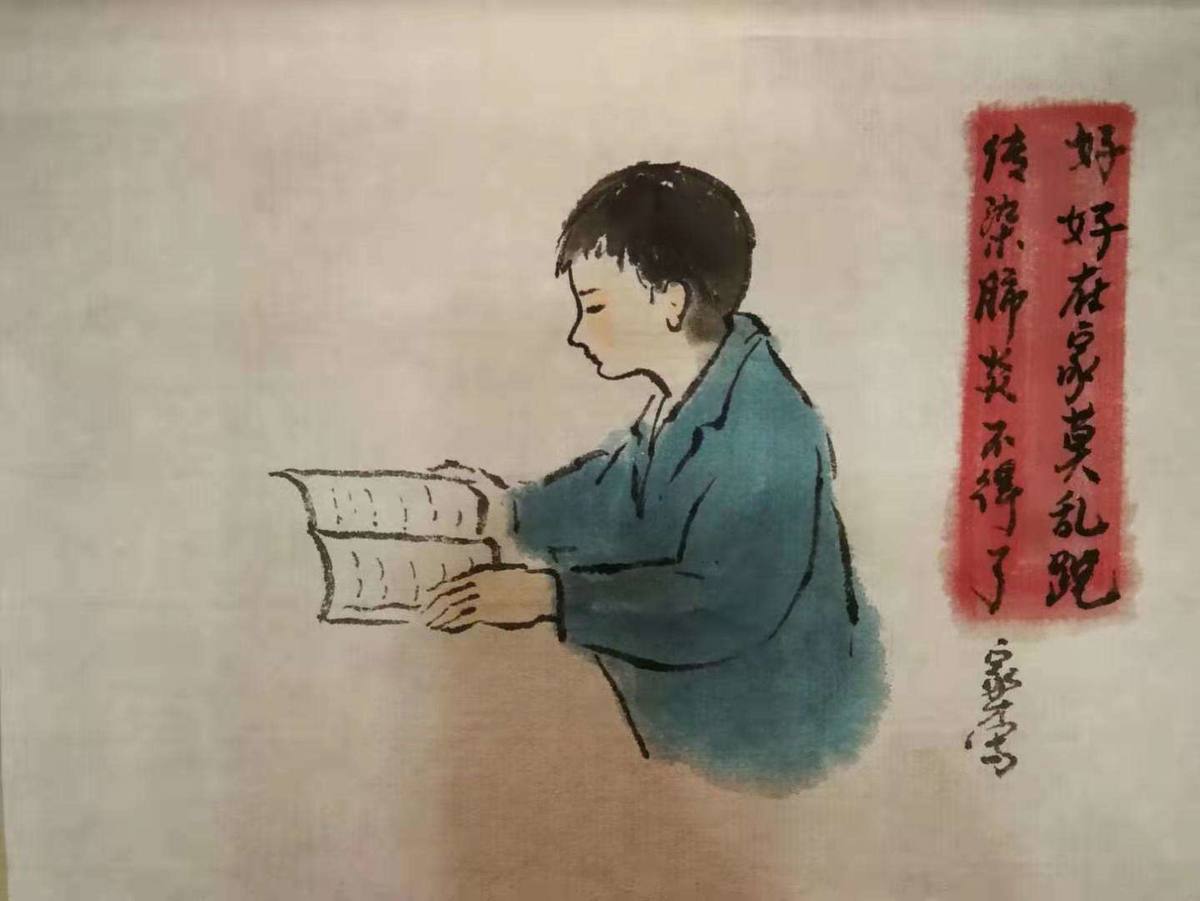 好好在家莫乱跑
传染肺炎不得了